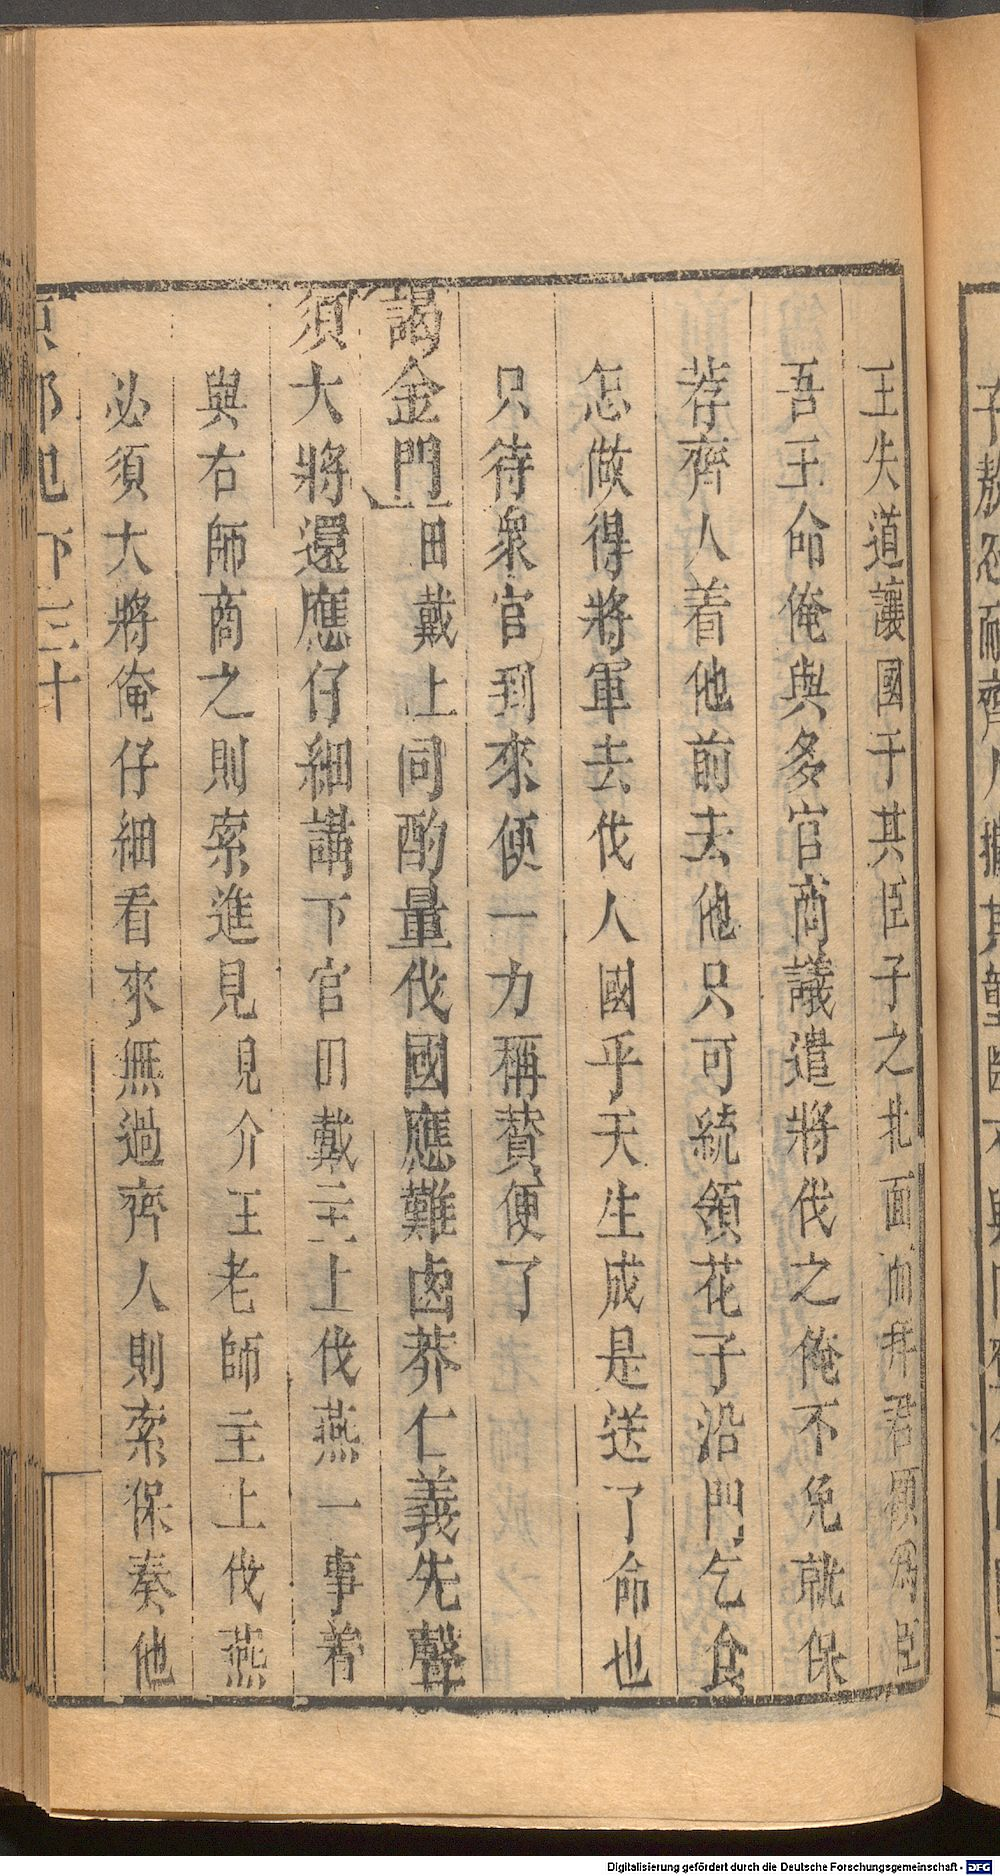 王失道讓國于其臣子之北面而拜君願爲臣
吾王命俺與多官商議遣將伐之俺不免就保
荐齊人着他前去他只可統領花子沿門乞食
怎做得將軍去伐人國乎天生成是送了命也
只待衆官到來便一力稱賛便了
謁金門田戴上同酌量伐國應難鹵莽仁義先聲
須大將還應仔細講下官田戴主上伐燕一事着
與右師商之則索進見見介王老師主上伐燕
必須大將俺仔細看來無過齊人則索保奏他
郭 下 三十
Digitalisierung gefördert durch die Deutsche Forschungsgemeinschaft - DFG